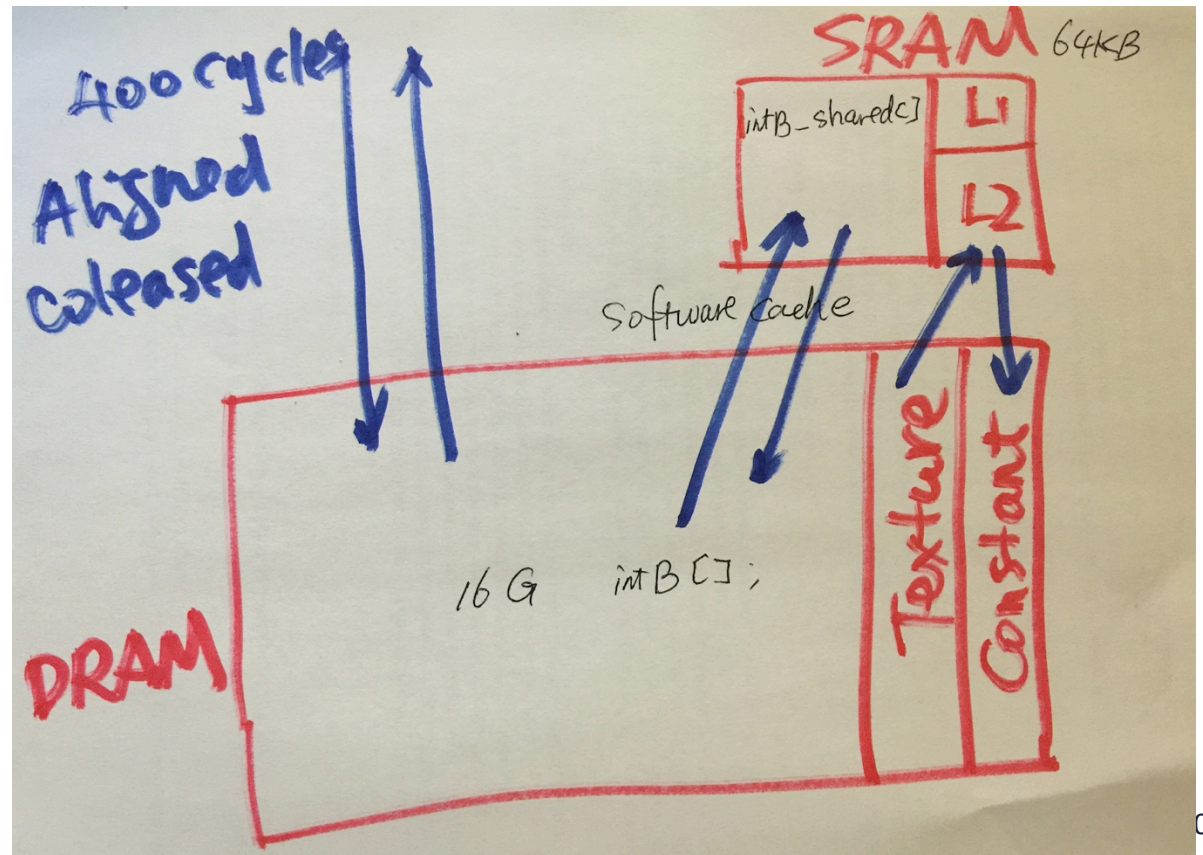 400 cycles
Aligned
coleased
SRAM 64KB
intB_shared[]
L1
L2
Software cache
16 G intB[];
Texture
Constant
DRAM